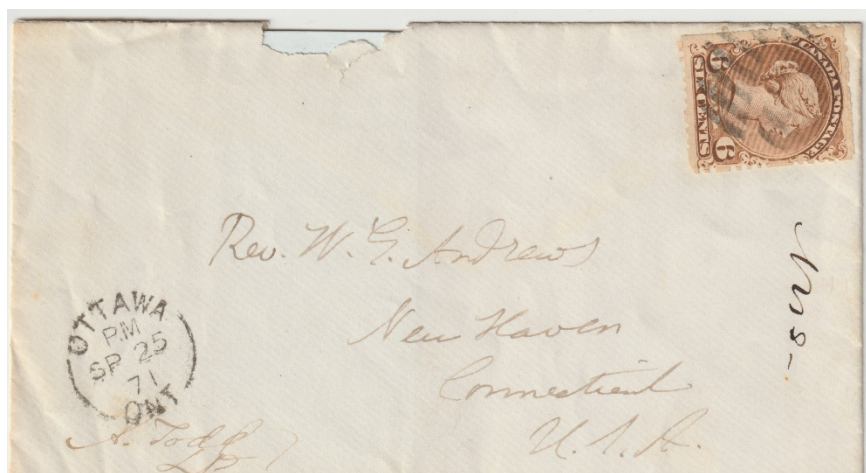 CANADA POSTAGE
6 SIX CENTS 6
Rev. W. G. Andrews
New Haven
Connecticut
U.S.A.
OTTAWA
PM
SP 25
71
ONT
A. Todd